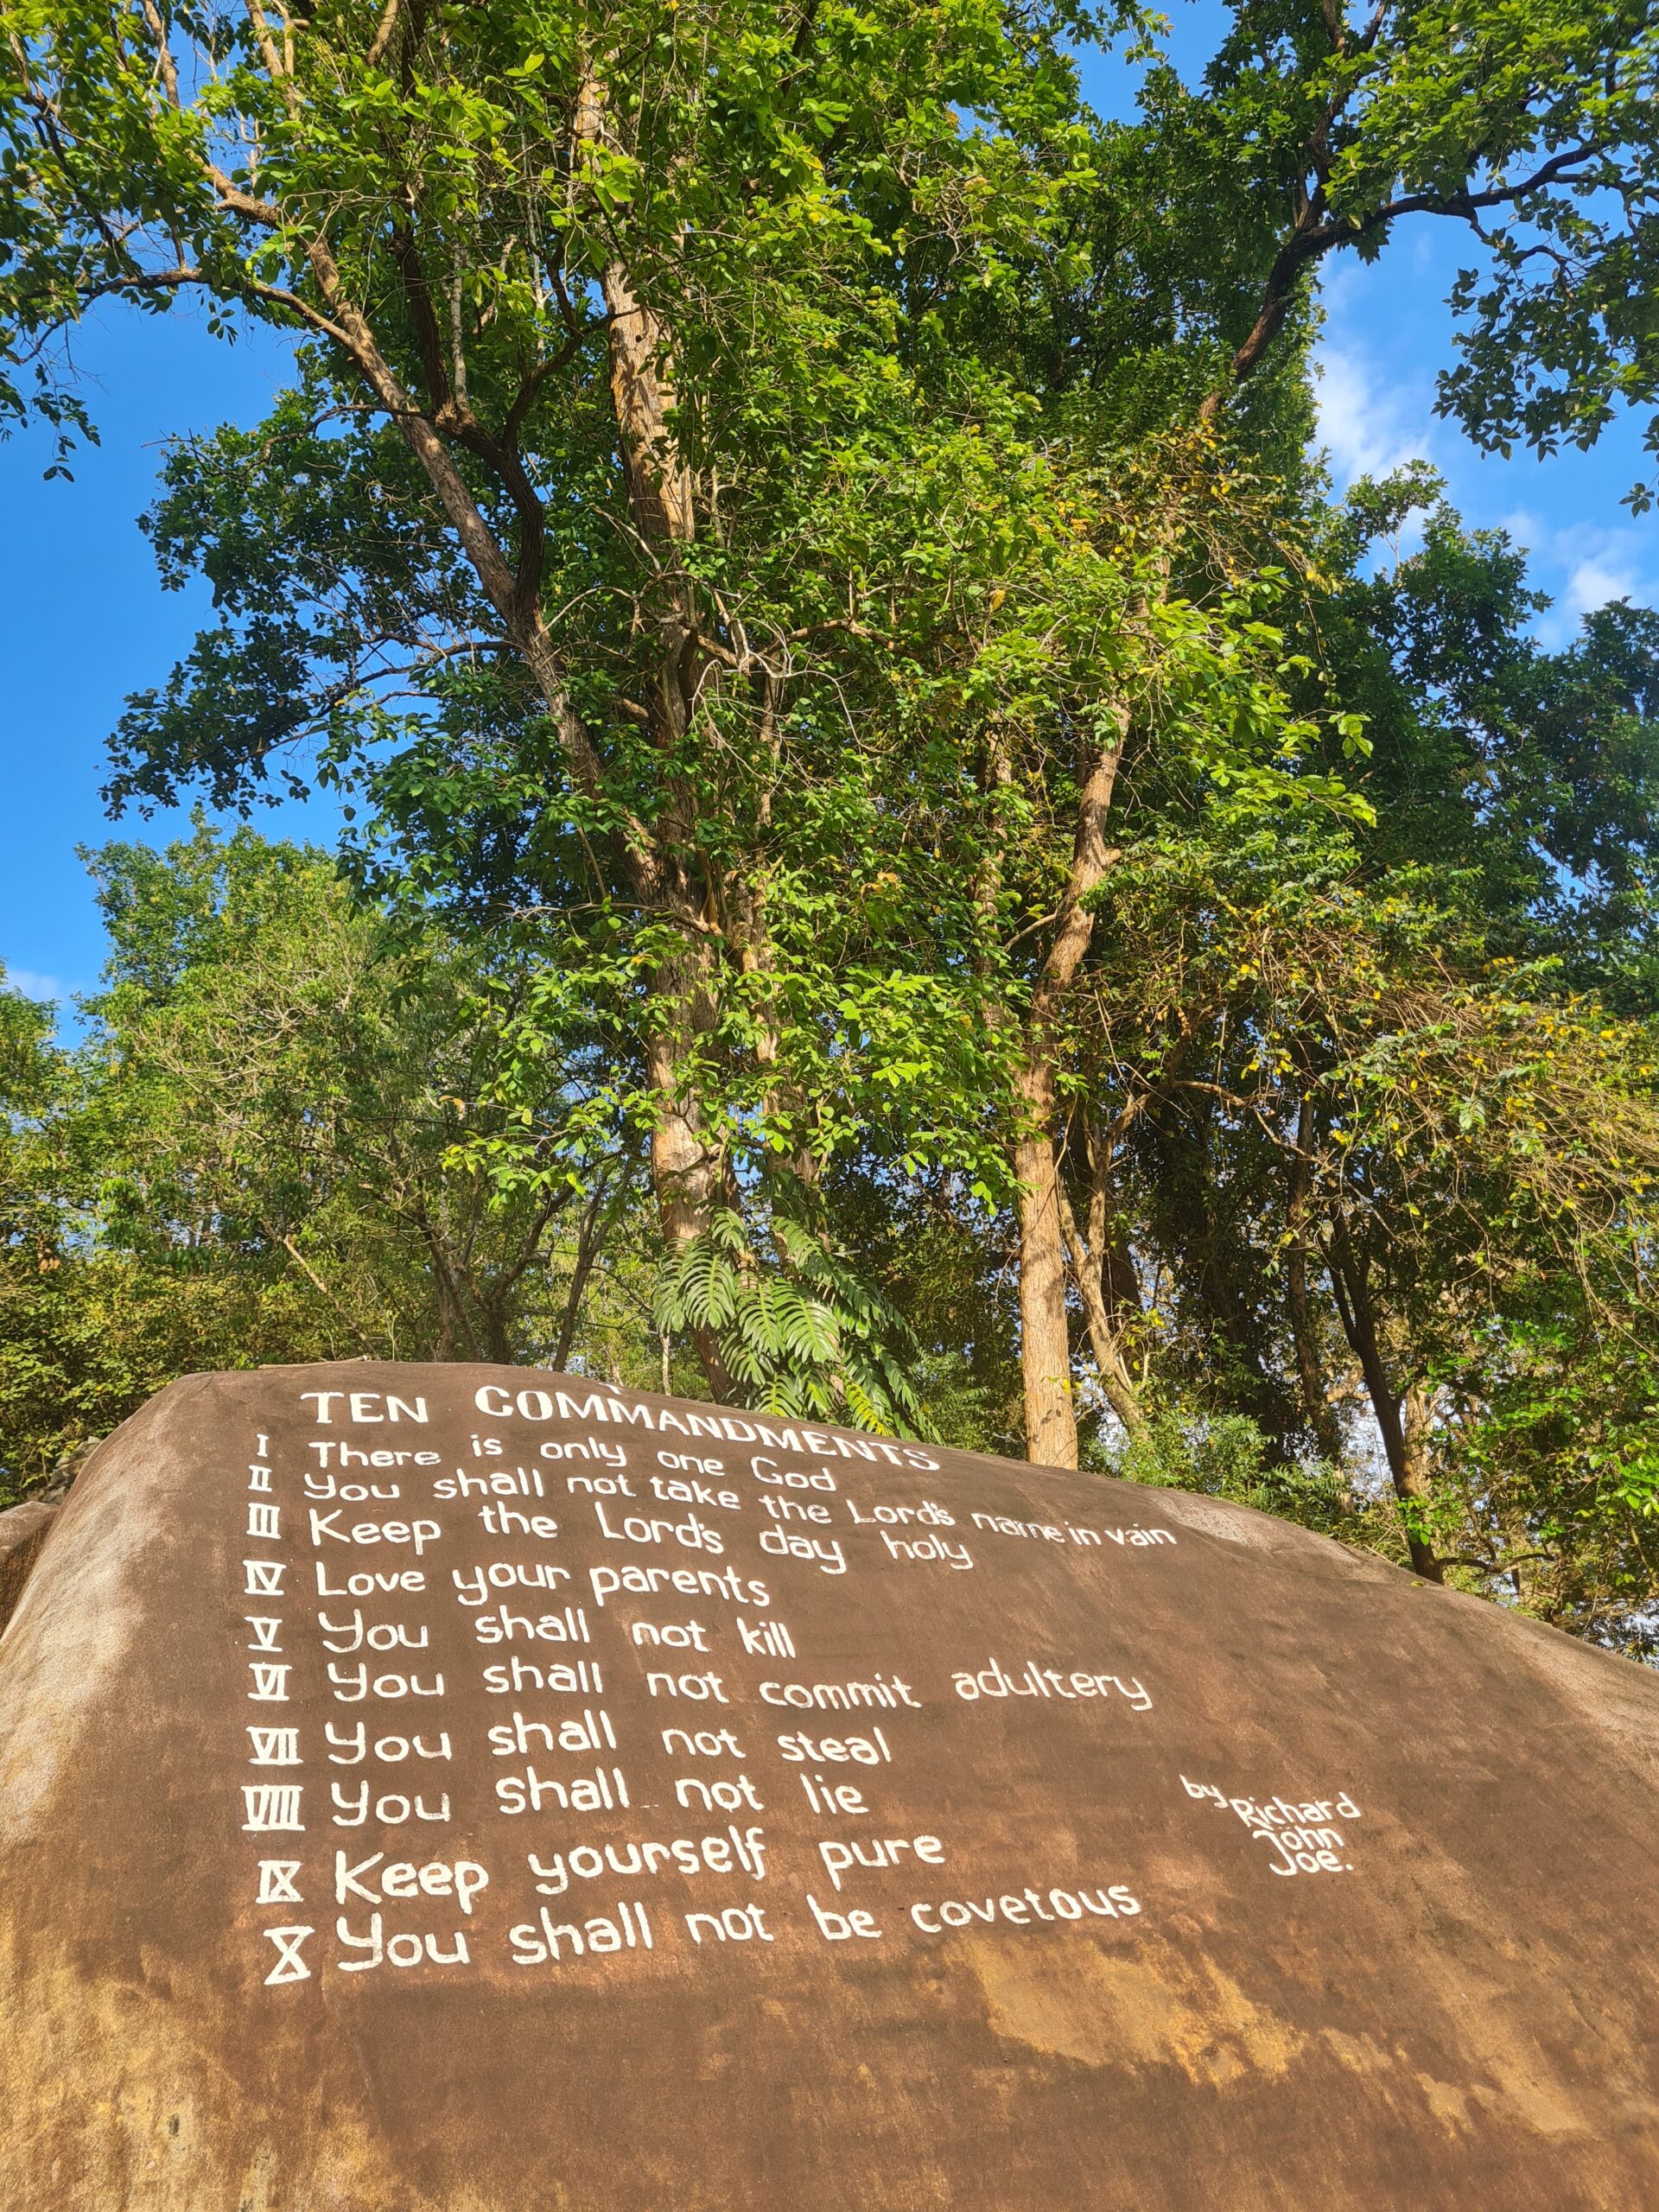 TEN COMMANDMENTS
I There is only one God
II You shall not take the Lord's name in vain
III Keep the Lord's day holy
IV Love your parents
V You shall not kill
VI You shall not commit adultery
VII You shall not steal
VIII You shall not lie
IX Keep yourself pure
X You shall not be covetous
by Richard
John
Joe.